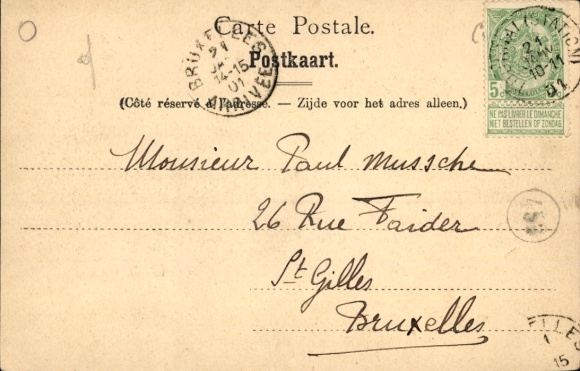 Carte Postale.
Postkaart.
(Côté réservé à l'adresse. — Zijde voor het adres alleen.)
BRUXELLES
21
14-15
01
ARRIVÉE
(STATION)
21
10-11
01
5
NE PAS LIVRER LE DIMANCHE
NIET BESTELLEN OP ZONDAG
Monsieur Paul Mussche
26 Rue Faider
St Gilles
Bruxelles
ELLES
1
15